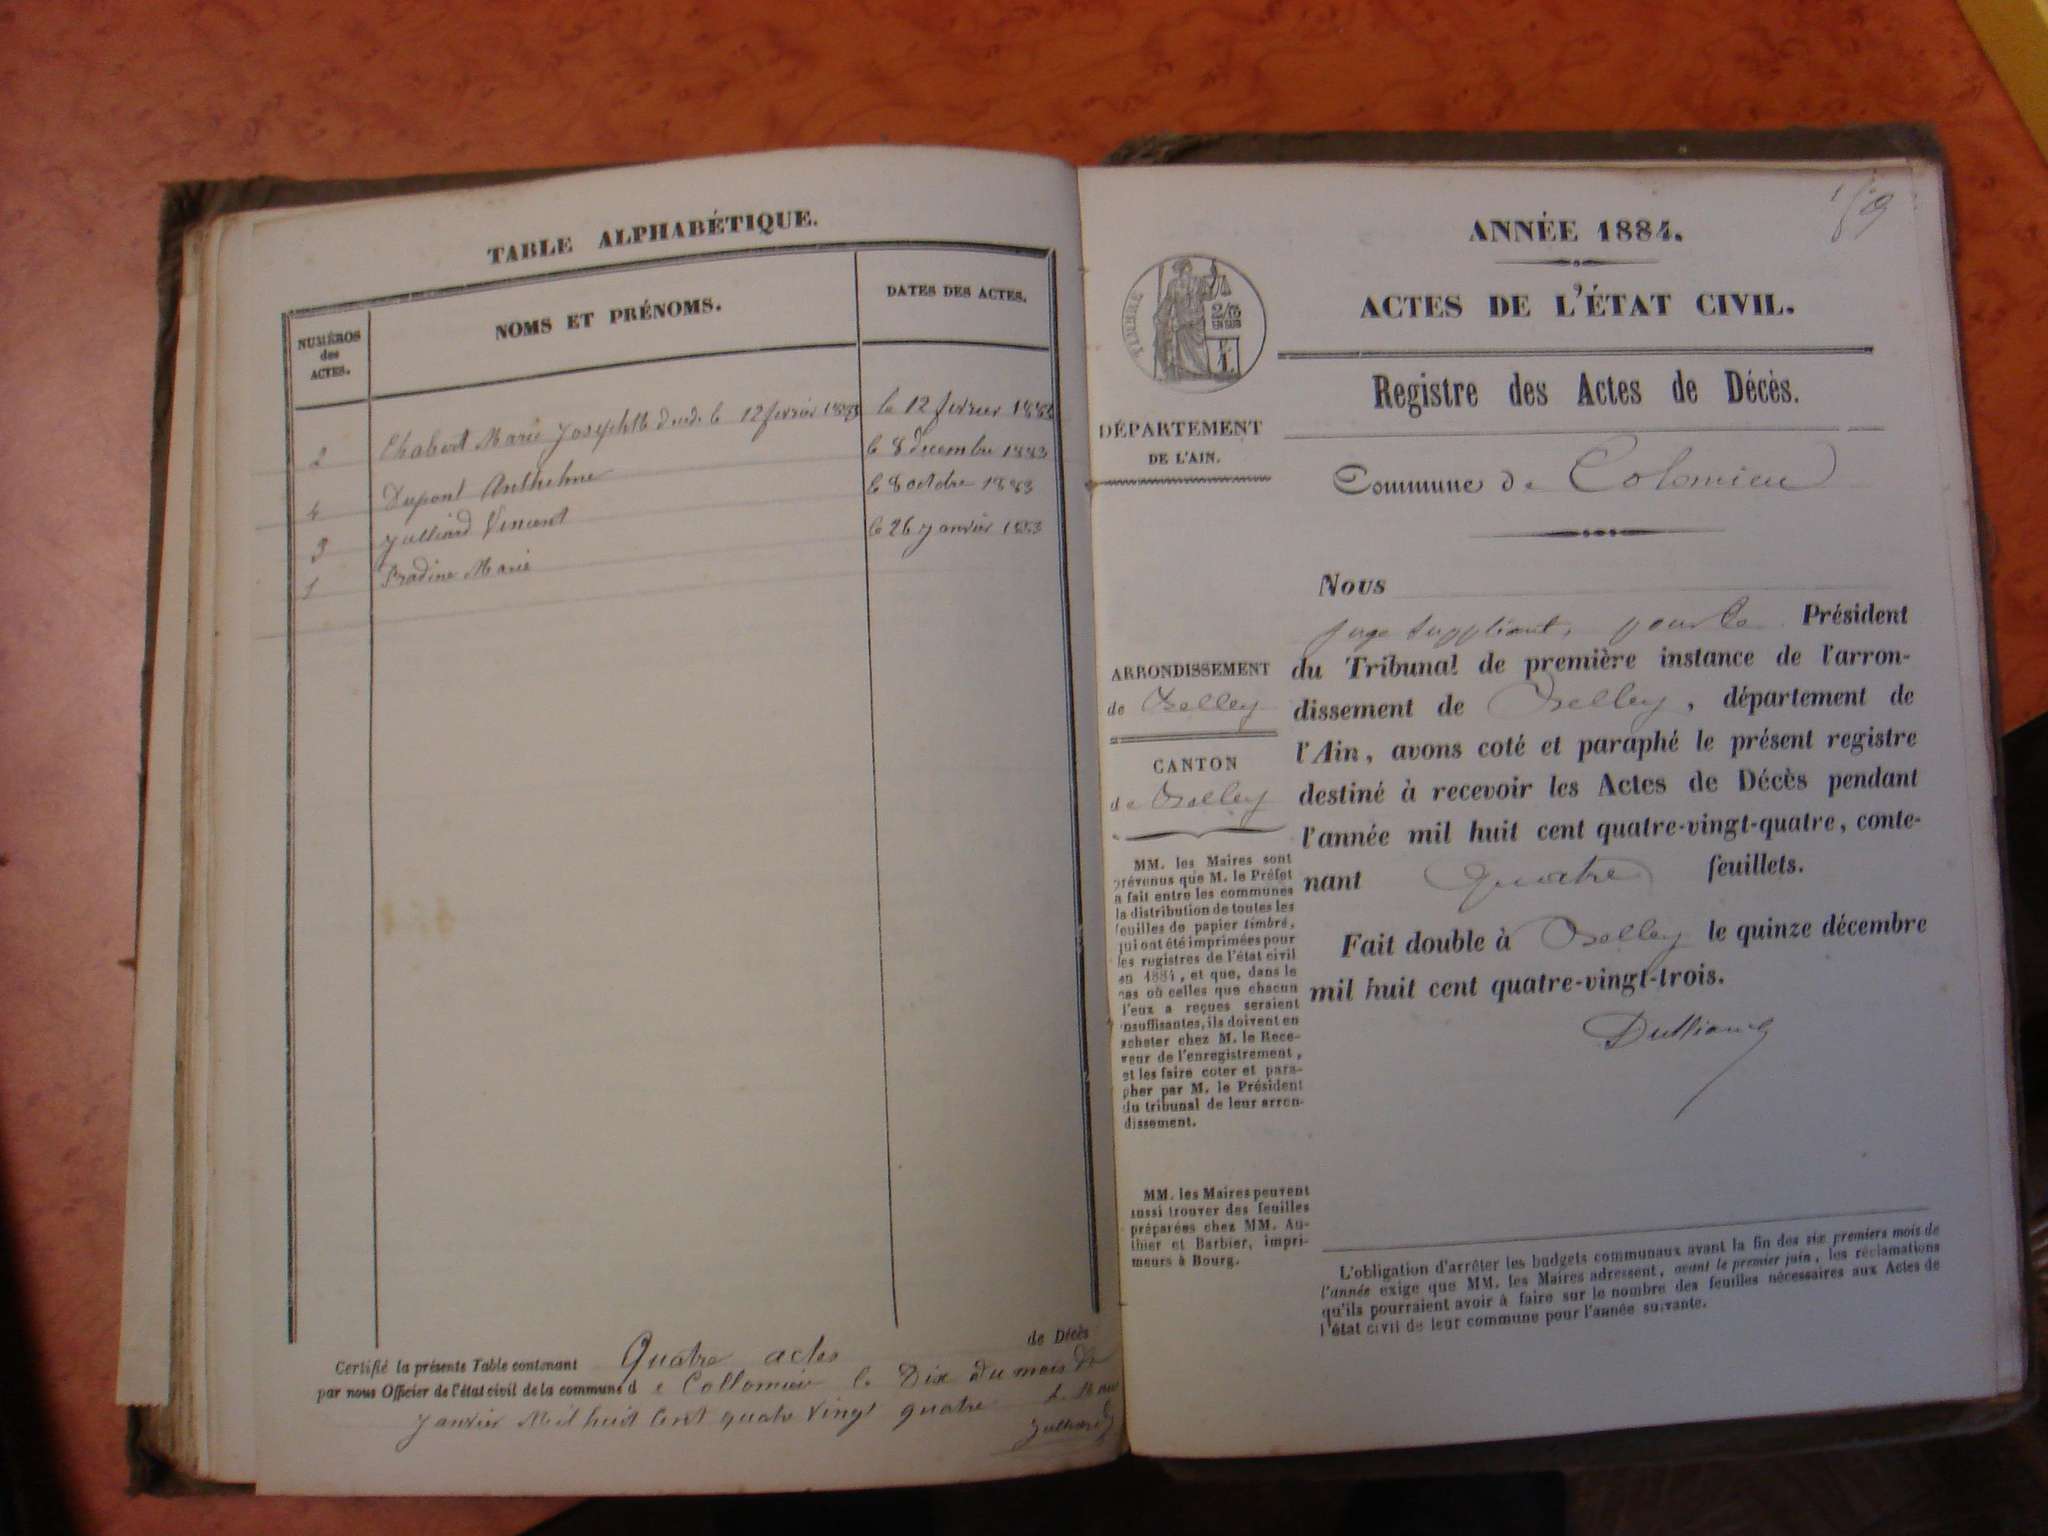 TABLE ALPHABÉTIQUE.
NUMÉROS
des
ACTES.
NOMS ET PRÉNOMS.
DATES DES ACTES.
2 Chabert Marie Josephte le 12 fevrier 1883 le 12 fevrier 1883
4 Dupont Anthelme le 8 decembre 1883
3 Julliard Vincent le 8 octobre 1883
1 Pradine Marie le 26 janvier 1883
Certifié la présente Table contenant Quatre actes de Décès
par nous Officier de l'état civil de la commune de Collomieu le Dix du mois de
janvier Mil huit Cent quatre vingt quatre
Julliard
ANNÉE 1884.
ACTES DE L'ÉTAT CIVIL.
TIMBRE
2/10
EN SUS
Registre des Actes de Décès.
DÉPARTEMENT
DE L'AIN.
Commune de Colomieu
Nous
juge suppléant, pour le Président
du Tribunal de première instance de l'arron-
dissement de Belley, département de
l'Ain, avons coté et paraphé le présent registre
destiné à recevoir les Actes de Décès pendant
l'année mil huit cent quatre-vingt-quatre, conte-
nant quatre feuillets.
Fait double à Belley le quinze décembre
mil huit cent quatre-vingt-trois.
ARRONDISSEMENT
de Belley
CANTON
de Belley
MM. les Maires sont
prévenus que M. le Préfet
a fait entre les communes
la distribution de toutes les
feuilles de papier timbré,
qui ont été imprimées pour
les registres de l'état civil
en 1884, et que, dans le
cas où celles que chacun
d'eux a reçues seraient
insuffisantes, ils doivent en
acheter chez M. le Rece-
veur de l'enregistrement,
et les faire coter et para-
pher par M. le Président
du tribunal de leur arron-
dissement.
MM. les Maires peuvent
aussi trouver des feuilles
préparées chez MM. Au-
thier et Barbier, impri-
meurs à Bourg.
L'obligation d'arrêter les budgets communaux avant la fin des six premiers mois de
l'année exige que MM. les Maires adressent, avant le premier juin, les réclamations
qu'ils pourraient avoir à faire sur le nombre des feuilles nécessaires aux Actes de
l'état civil de leur commune pour l'année suivante.